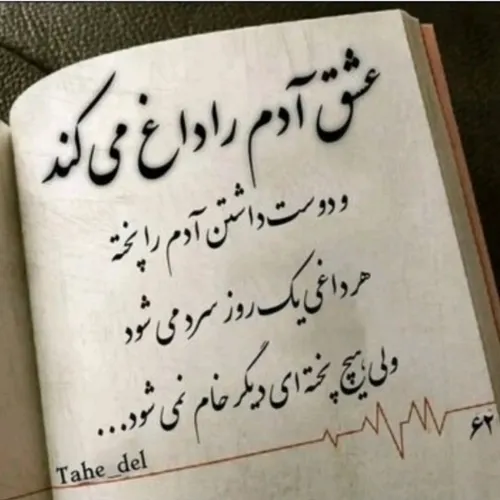 عشق آدم را داغ می کند
و دوست داشتن آدم را پخته
هر داغی یک روز سرد می شود
ولی هیچ پخته ای دیگر خام نمی شود...
۶۲
Tahe_del